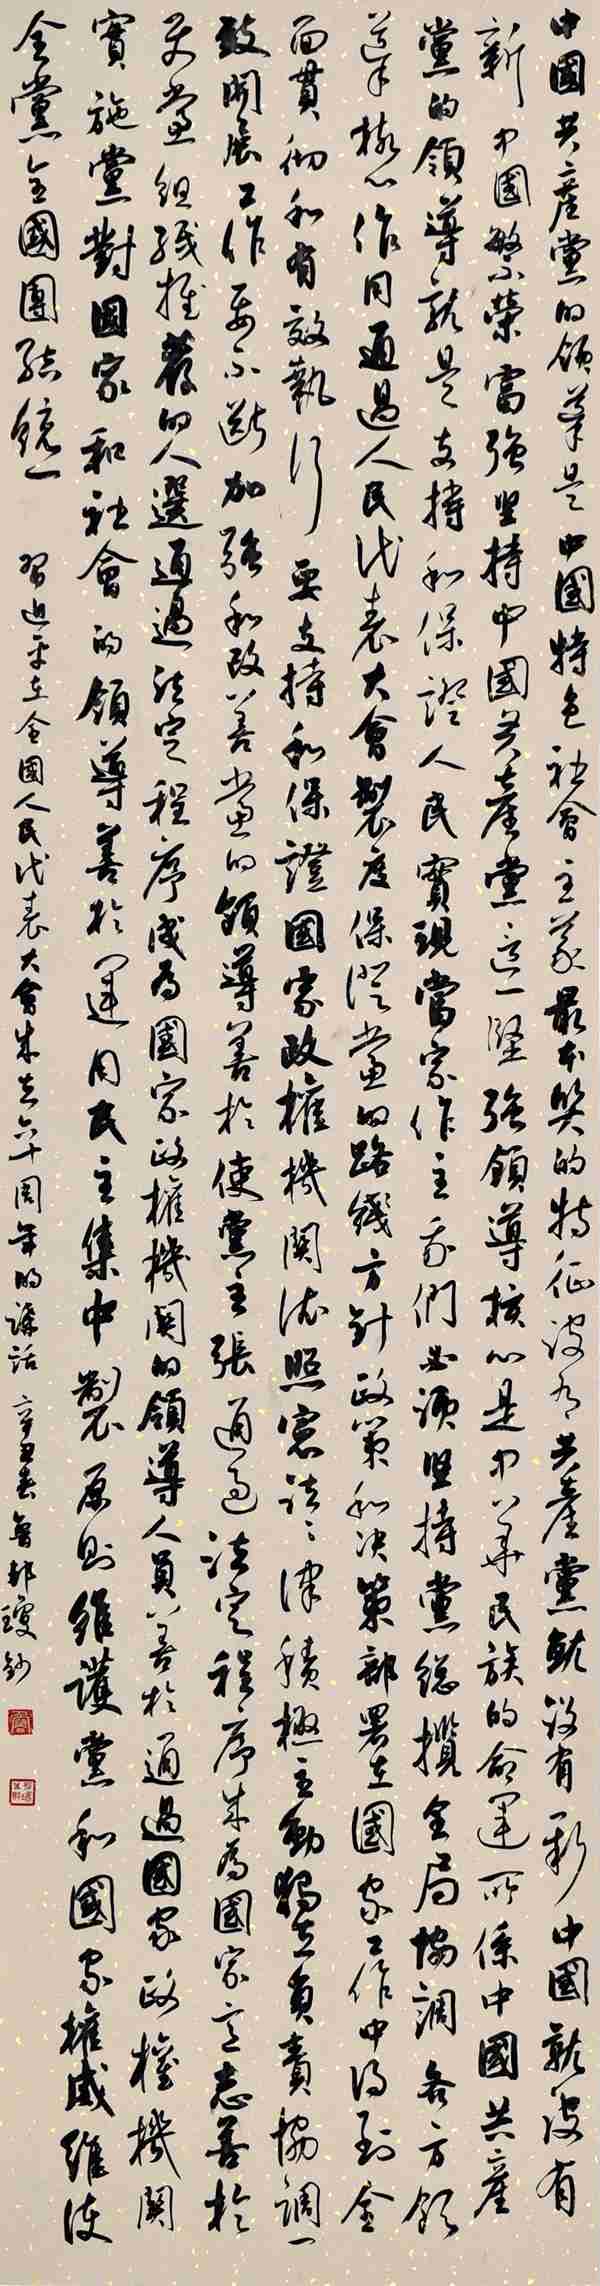 中國共產黨的領導是中國特色社會主義最本質的特征沒有共產黨就沒有新中國就沒有
新中國繁榮富強堅持中國共產黨這一堅強領導核心是中華民族的命運所係中國共產
黨的領導就是支持和保證人民實現當家作主我們必須堅持黨總攬全局協調各方領
導核心作用通過人民代表大會製度保證黨的路綫方針政策和決策部署在國家工作中得到全
面貫彻和有效執行要支持和保證國家政權機關依照憲法法律積極主動獨立負責協調一
致開展工作要不斷加強和改善黨的領導善於使黨主張通過法定程序成為國家意志善於
使黨組織推薦的人選通過法定程序成為國家政權機關的領導人員善於通過國家政權機關
實施黨對國家和社會的領導善於運用民主集中製原則維護黨和國家權威維護
全黨全國團結統一
習近平在全國人民代表大會成立六十周年的講話 辛丑春 魯邦瓊鈔